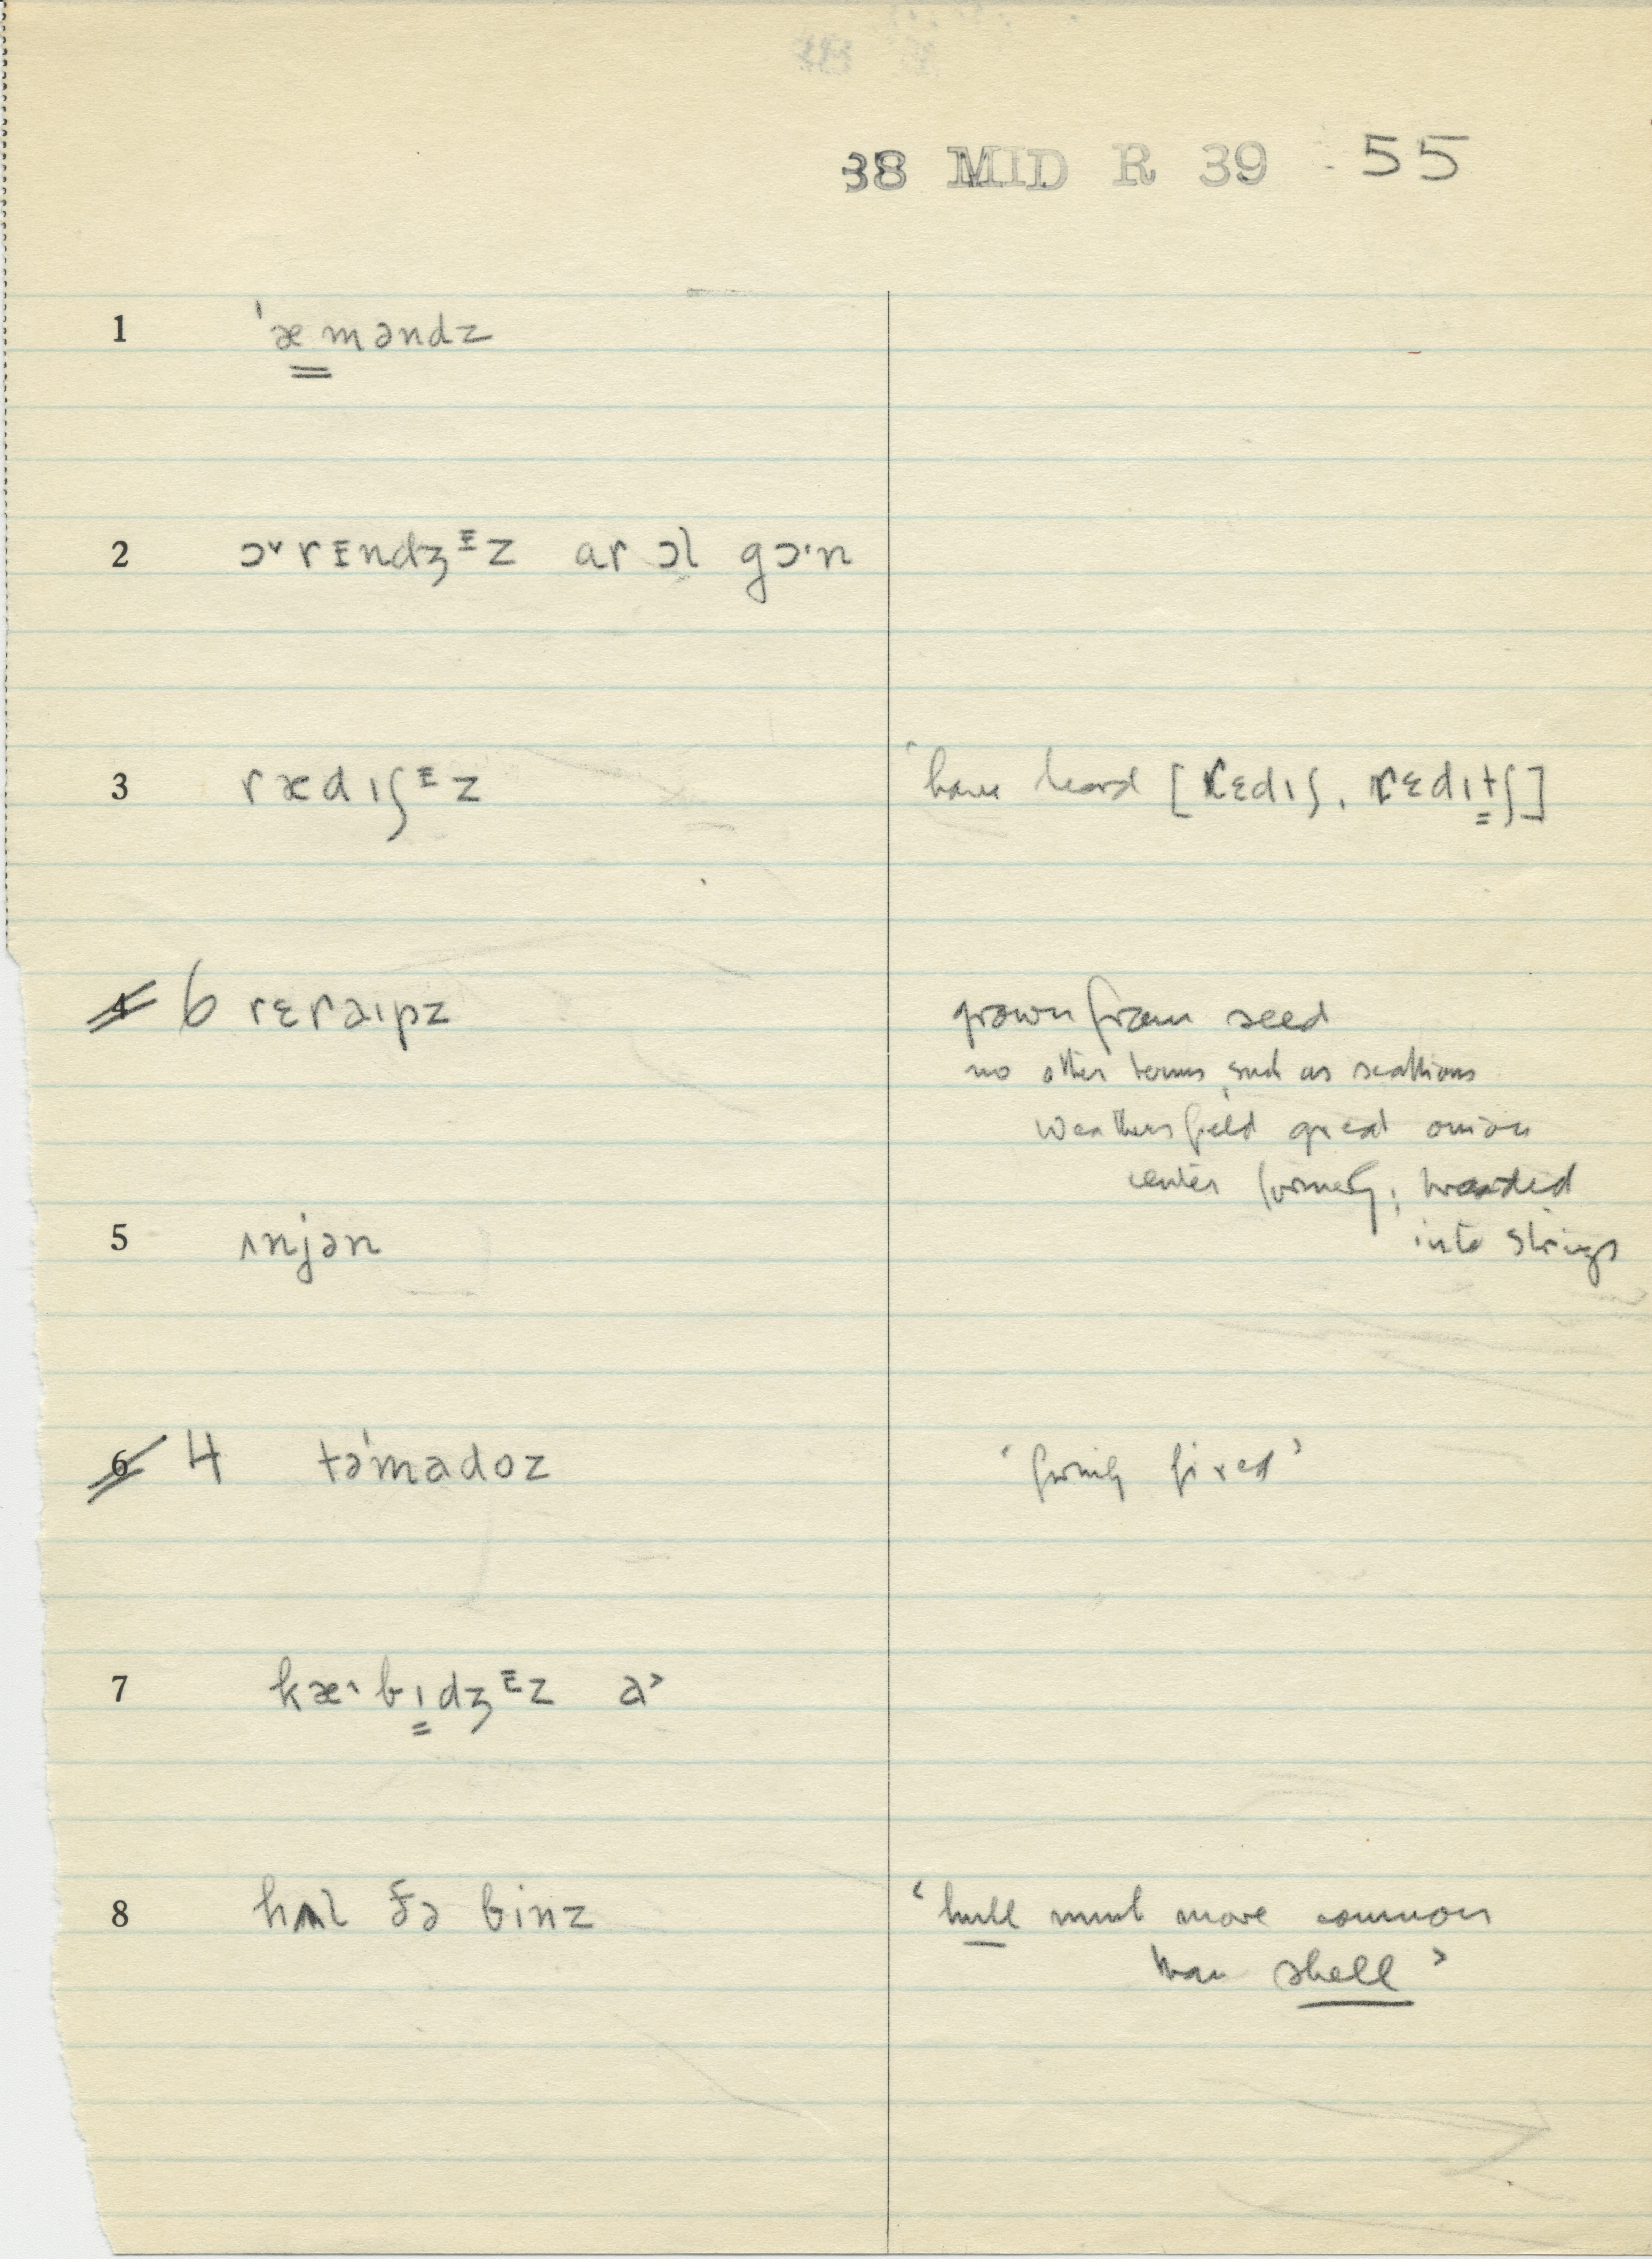 38 MID R 39 55
1 ˈæməndz
2 ɔ˅rɪndʒᵻz ar ɔl gɔ·n
3 rædɪʃᵻz ‘have heard [rɛdɪʃ, rɛdɪtʃ]
4 6 rɛraɪpz grown from seed
no other terms, such as scallions
Weathersfield great onion
center formerly; braided
into strings
5 ʌnjən
6 4 təˈmadoz ‘firmly fixed’
7 kæ·bɪdʒᵻz a˃
8 hʌl ðə binz ‘hull much more common
than shell’